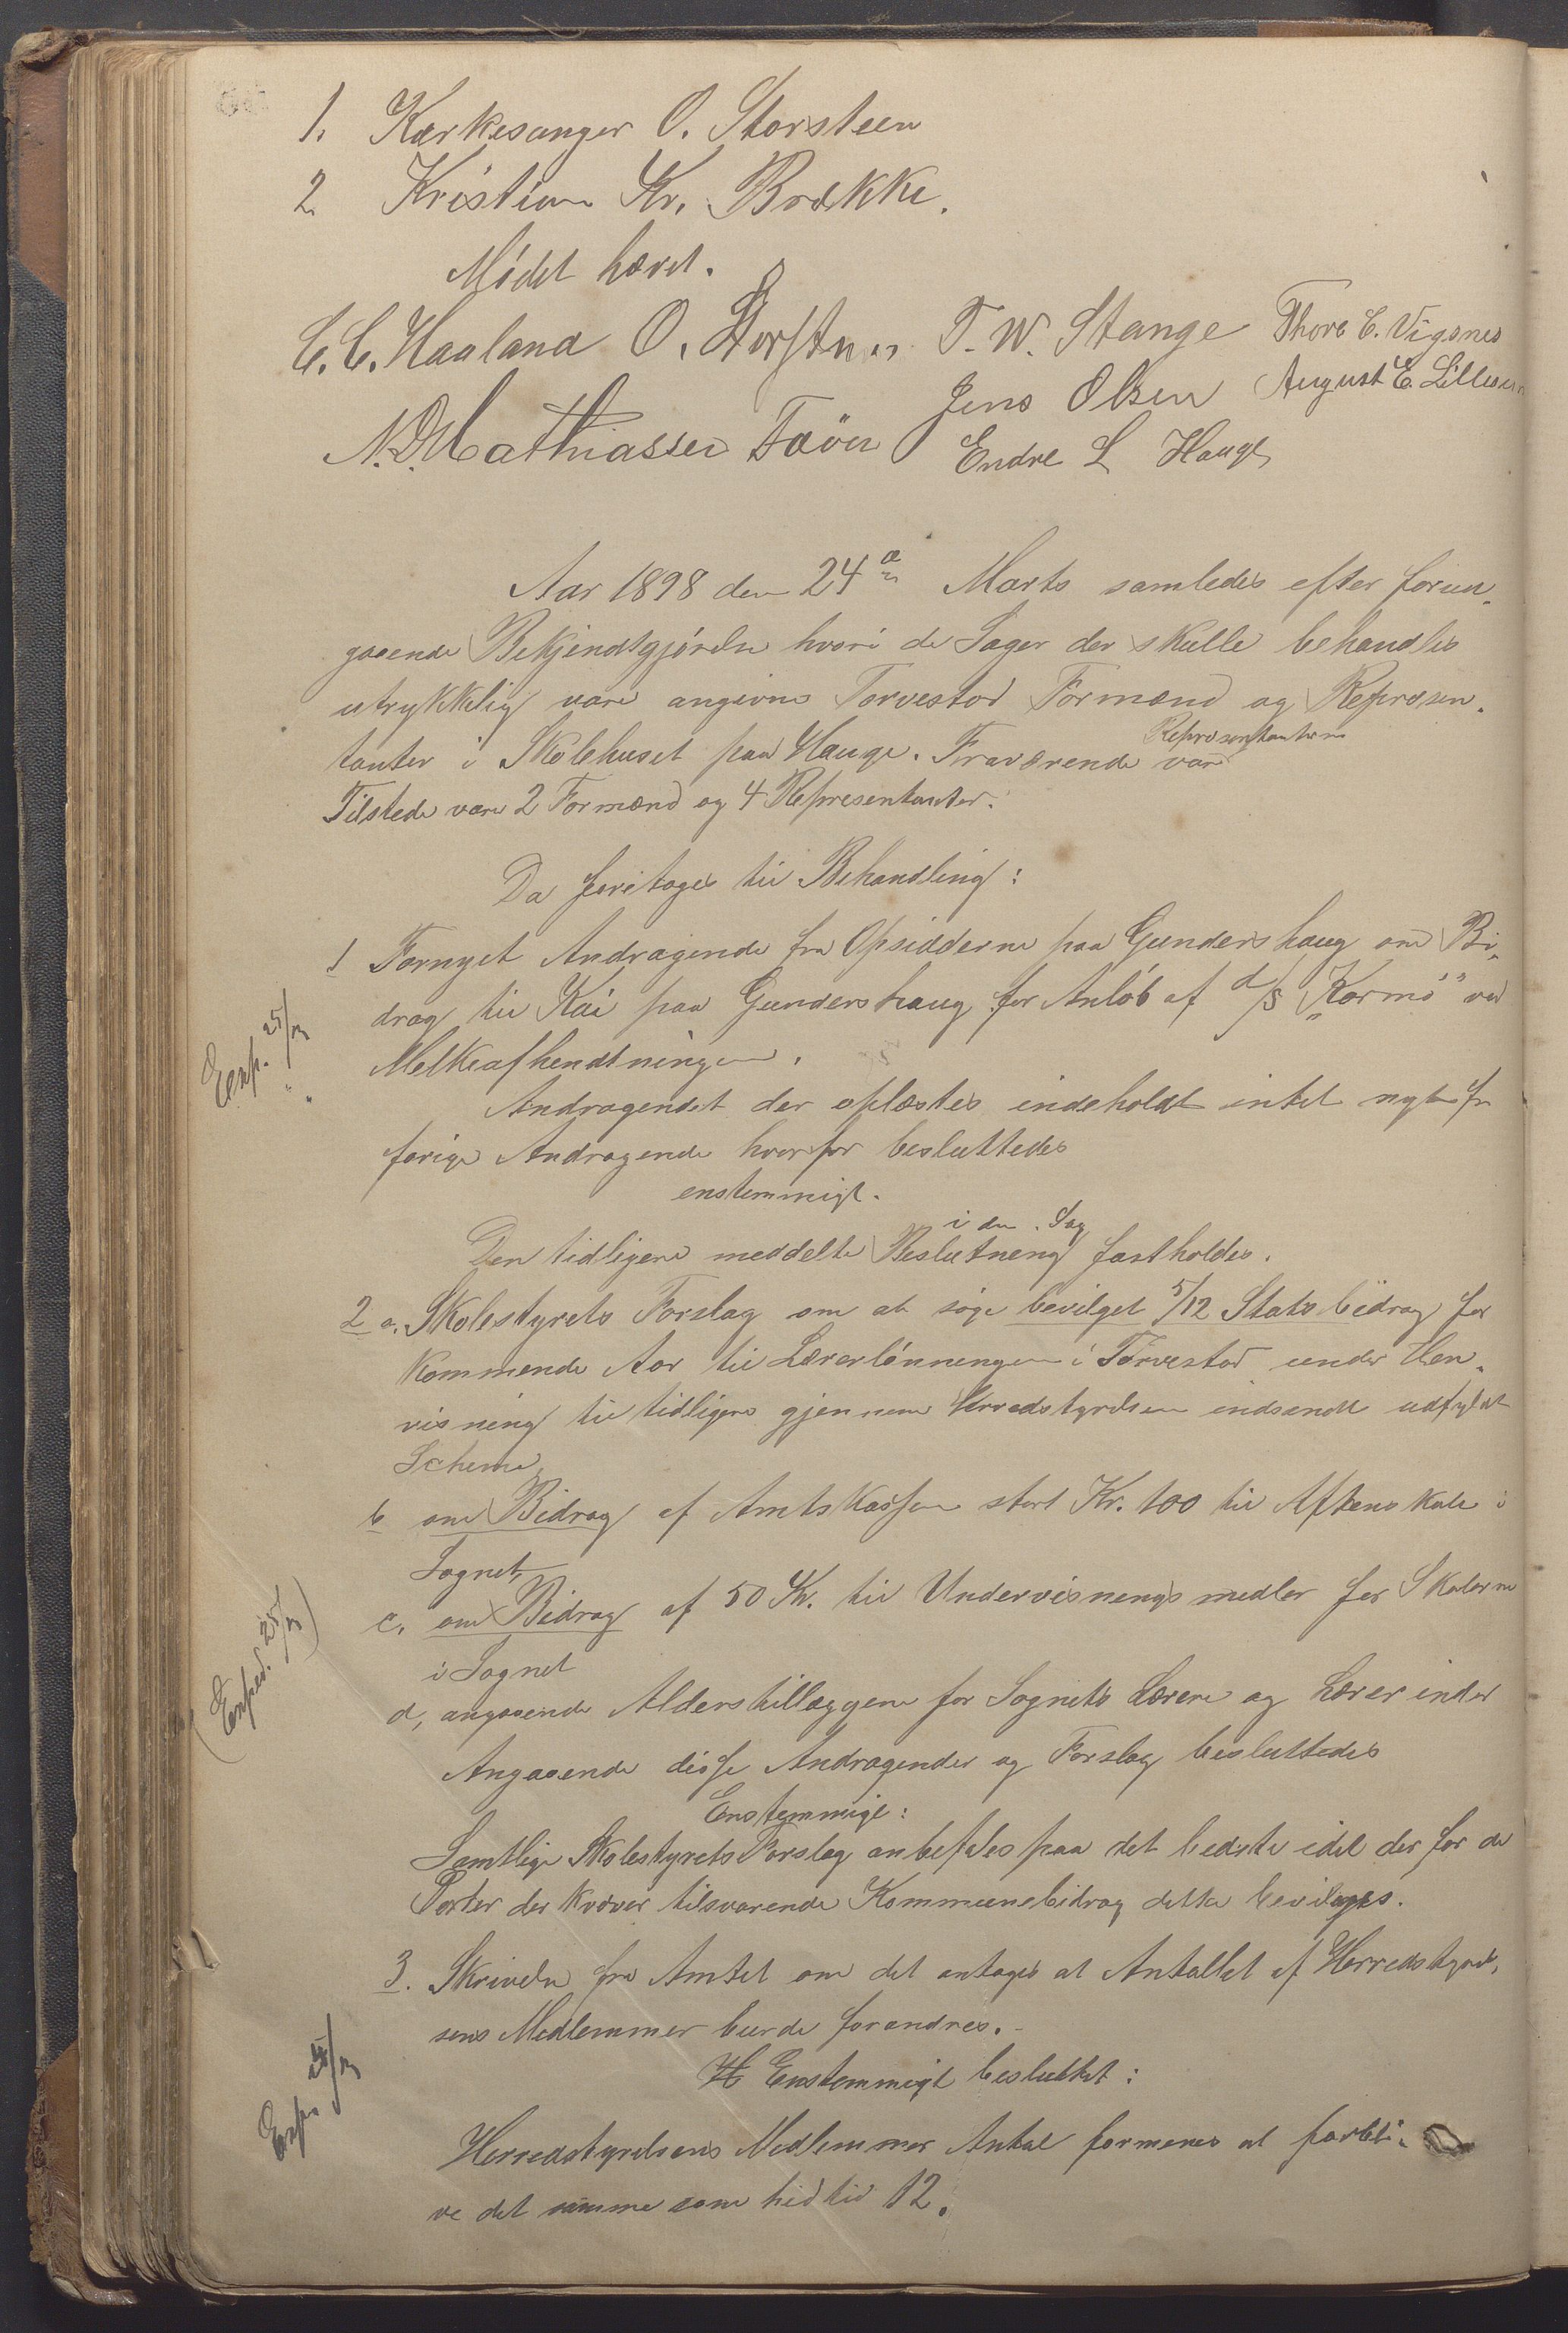 1. Kirkesanger O. Storsteen
2 Kristian Kr. Brække.
Mödet hævet.
C. C. Haaland O. Storsteen T. W. Stange Thore C. Vigsnes
Jens Olsen August E. Lillesun
N. D. Mathiassen Faöen Endre L Hauge
Aar 1898 den 24de Marts samledes efter forun-
gaaende Bekjendtgjörelse hvori de Sager der skulle behandles
utrykkelig vare angivne Torvestad Formænd og Repræsen-
tanter i Skolehuset paa Hauge. Fraværende var Repræsentanterne
Tilstede vare 2 Formænd og 4 Representanter.
Da foretages til Behandling:
1 Fornyet Andragende fra Opsidderne paa Gundershaug om Bi-
drag til Kai paa Gundershaug for Anlöb af d/s "Karmö" ved
Melkeafhendtningen.
Exp. 25/3
Andragendet der oplæstes indeholdt intet nyt fr
forige Andragende hvorfor besluttedes
enstemmigt.
Den tidligere meddelte Beslutning i den Sag fastholdes.
2 a. Skolestyrets Forslag om at söge bevilget 5/12 Statsbidrag for
kommende Aar til Lærerlönningen i Torvestad under Hen-
visning til tidligere gjennem Herredstyrelsen indsendt udfyldt
Schema
b om Bidrag af Amtskassen stort Kr. 100 til Aftenskole i
Sognet,
c. om Bidrag af 50 Kr. til Undervisningsmedler for Skolerne
i Sognet
(Exped. 25/3)
d, angaaende Alderstillæggene for Sognets Lærere og Lærerinder
Angaaende disse Andragender og Forslag besluttedes
Enstemmigt:
Samtlige Skolestyrets Forslag anbefales paa det bedste idet der for de
Poster der kræver tilsvarende Kommunebidrag dette bevilges.
3. Skrivelse fra Amtet om det antages at Antallet af Herredstyrel-
sens Medlemmer burde forandres.-
H Enstemmigt besluttet:
Exp. 25/3
Herredstyrelsens Medlemmer Antal formenes at forbli-
ve det samme som hidtil 12.